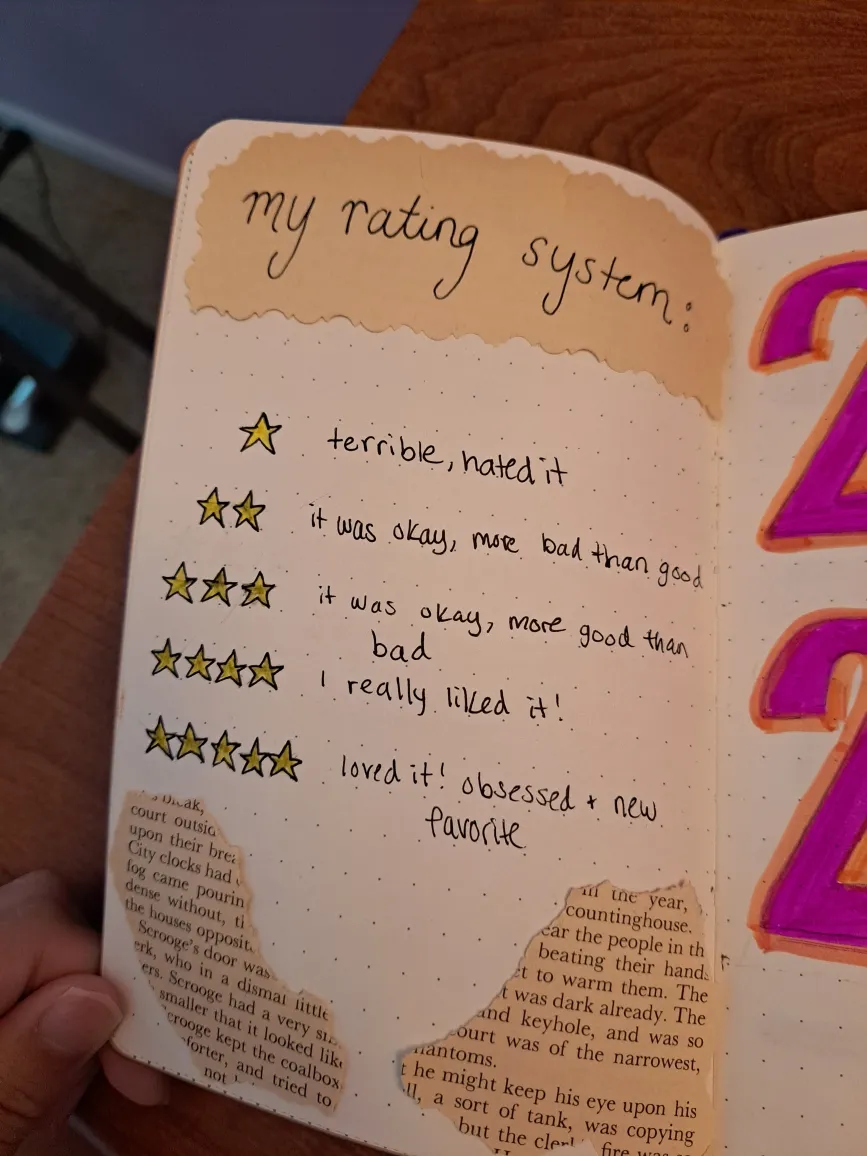 my rating system:
terrible, hated it
it was okay, more bad than good
it was okay, more good than
bad
I really liked it!
loved it! obsessed + new
favorite
court outsid
upon their brea
City clocks had
fog came pourin
dense without, t
the houses opposit
Scrooge's door was
erk, who in a dismal little
ers. Scrooge had a very s
smaller that it looked lik
crooge kept the coalbox
forter, and tried to
not
in the year,
countinghouse.
ear the people in th
beating their hands
et to warm them. The
t was dark already. The
and keyhole, and was so
ourt was of the narrowest,
hantoms.
t he might keep his eye upon his
ll, a sort of tank, was copying
but the cler fire was
2
2